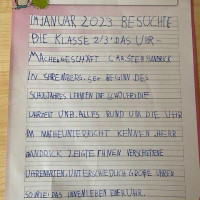 IM JANUAR 2023 BESUCHTE
DIE KLASSE 2/3 DAS UHR-
MACHERGESCHÄFT C.R.STEFAN HANDRICK
IN OHRENBERG. SEIT BEGINN DES
SCHULJAHRES LERNEN DIE SCHÜLER DIE
UHRZEIT UND ALLES RUND UM DIE UHR
IM MATHEUNTERICHT KENNEN. HERR
HANDRICK ZEIGTE IHNEN VERSCHIEDENE
UHRENARTEN, UNTERSCHIEDLICH GROßE UHREN
SOWIE DAS INNENLEBEN EINER UHR.